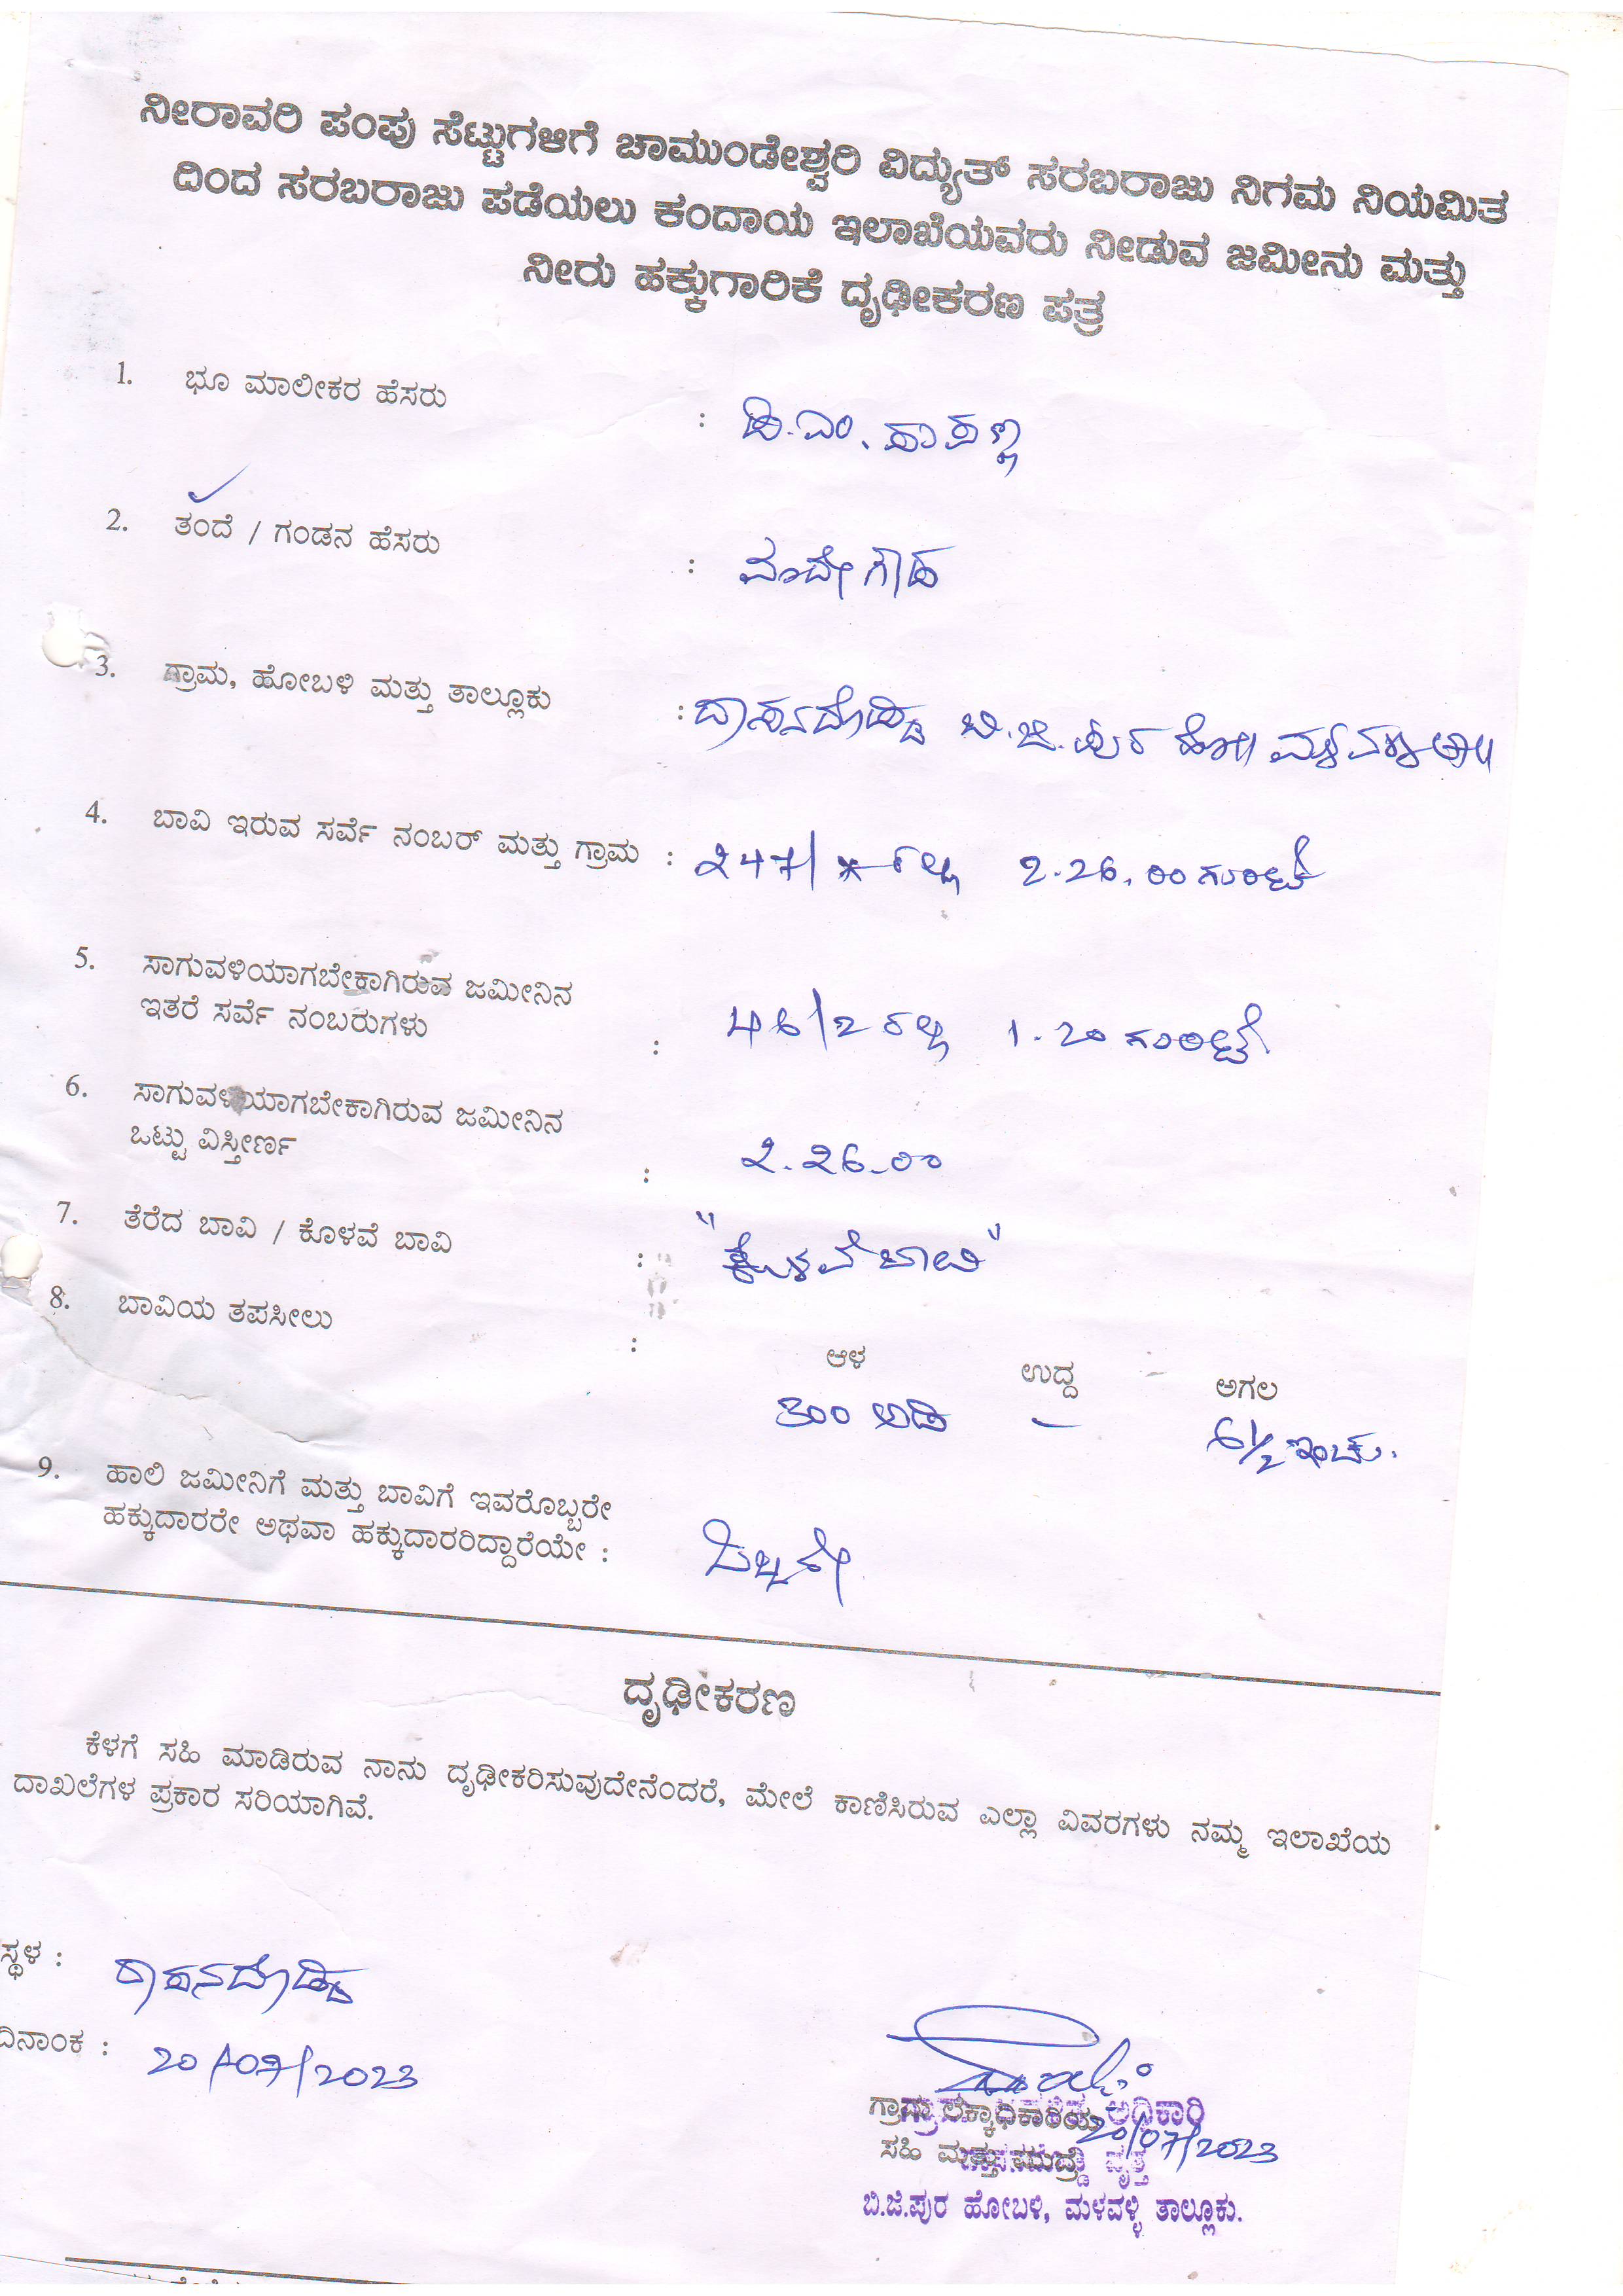 ನೀರಾವರಿ ಪಂಪು ಸೆಟ್ಟುಗಳಿಗೆ ಚಾಮುಂಡೇಶ್ವರಿ ವಿದ್ಯುತ್ ಸರಬರಾಜು ನಿಗಮ ನಿಯಮಿತ
ದಿಂದ ಸರಬರಾಜು ಪಡೆಯಲು ಕಂದಾಯ ಇಲಾಖೆಯವರು ನೀಡುವ ಜಮೀನು ಮತ್ತು
ನೀರು ಹಕ್ಕುಗಾರಿಕೆ ದೃಢೀಕರಣ ಪತ್ರ
1. ಭೂ ಮಾಲೀಕರ ಹೆಸರು :
2. ತಂದೆ / ಗಂಡನ ಹೆಸರು :
3. ಗ್ರಾಮ, ಹೋಬಳಿ ಮತ್ತು ತಾಲ್ಲೂಕು : ದಾಸನದೊಡ್ಡಿ ಬಿ.ಜಿ.ಪುರ ಹೋ||
4. ಬಾವಿ ಇರುವ ಸರ್ವೆ ನಂಬರ್ ಮತ್ತು ಗ್ರಾಮ : 247/ ರಲ್ಲಿ 2.26.00 ಗುಂಟೆ
5. ಸಾಗುವಳಿಯಾಗಬೇಕಾಗಿರುವ ಜಮೀನಿನ
ಇತರೆ ಸರ್ವೆ ನಂಬರುಗಳು : 46/2 ರಲ್ಲಿ 1.20 ಗುಂಟೆ
6. ಸಾಗುವಳಿಯಾಗಬೇಕಾಗಿರುವ ಜಮೀನಿನ
ಒಟ್ಟು ವಿಸ್ತೀರ್ಣ : 2.26-00
7. ತೆರೆದ ಬಾವಿ / ಕೊಳವೆ ಬಾವಿ : "ಕೊಳವೆ ಬಾವಿ"
8. ಬಾವಿಯ ತಪಸೀಲು :
ಆಳ ಉದ್ದ ಅಗಲ
300 ಅಡಿ – 6½ ಇಂಚು.
9. ಹಾಲಿ ಜಮೀನಿಗೆ ಮತ್ತು ಬಾವಿಗೆ ಇವರೊಬ್ಬರೇ
ಹಕ್ಕುದಾರರೇ ಅಥವಾ ಹಕ್ಕುದಾರರಿದ್ದಾರೆಯೇ : ಒಬ್ಬರೇ
ದೃಢೀಕರಣ
ಕೆಳಗೆ ಸಹಿ ಮಾಡಿರುವ ನಾನು ದೃಢೀಕರಿಸುವುದೇನೆಂದರೆ, ಮೇಲೆ ಕಾಣಿಸಿರುವ ಎಲ್ಲಾ ವಿವರಗಳು ನಮ್ಮ ಇಲಾಖೆಯ
ದಾಖಲೆಗಳ ಪ್ರಕಾರ ಸರಿಯಾಗಿವೆ.
ಸ್ಥಳ : ದಾಸನದೊಡ್ಡಿ
ದಿನಾಂಕ : 20/07/2023
ಗ್ರಾಮ ಲೆಕ್ಕಾಧಿಕಾರಿಯ ಅಧಿಕಾರಿ
20/07/2023
ಸಹಿ ಮತ್ತು ಮುದ್ರೆ ವೃತ್ತ
ಬಿ.ಜಿ.ಪುರ ಹೋಬಳಿ, ಮಳವಳ್ಳಿ ತಾಲ್ಲೂಕು.